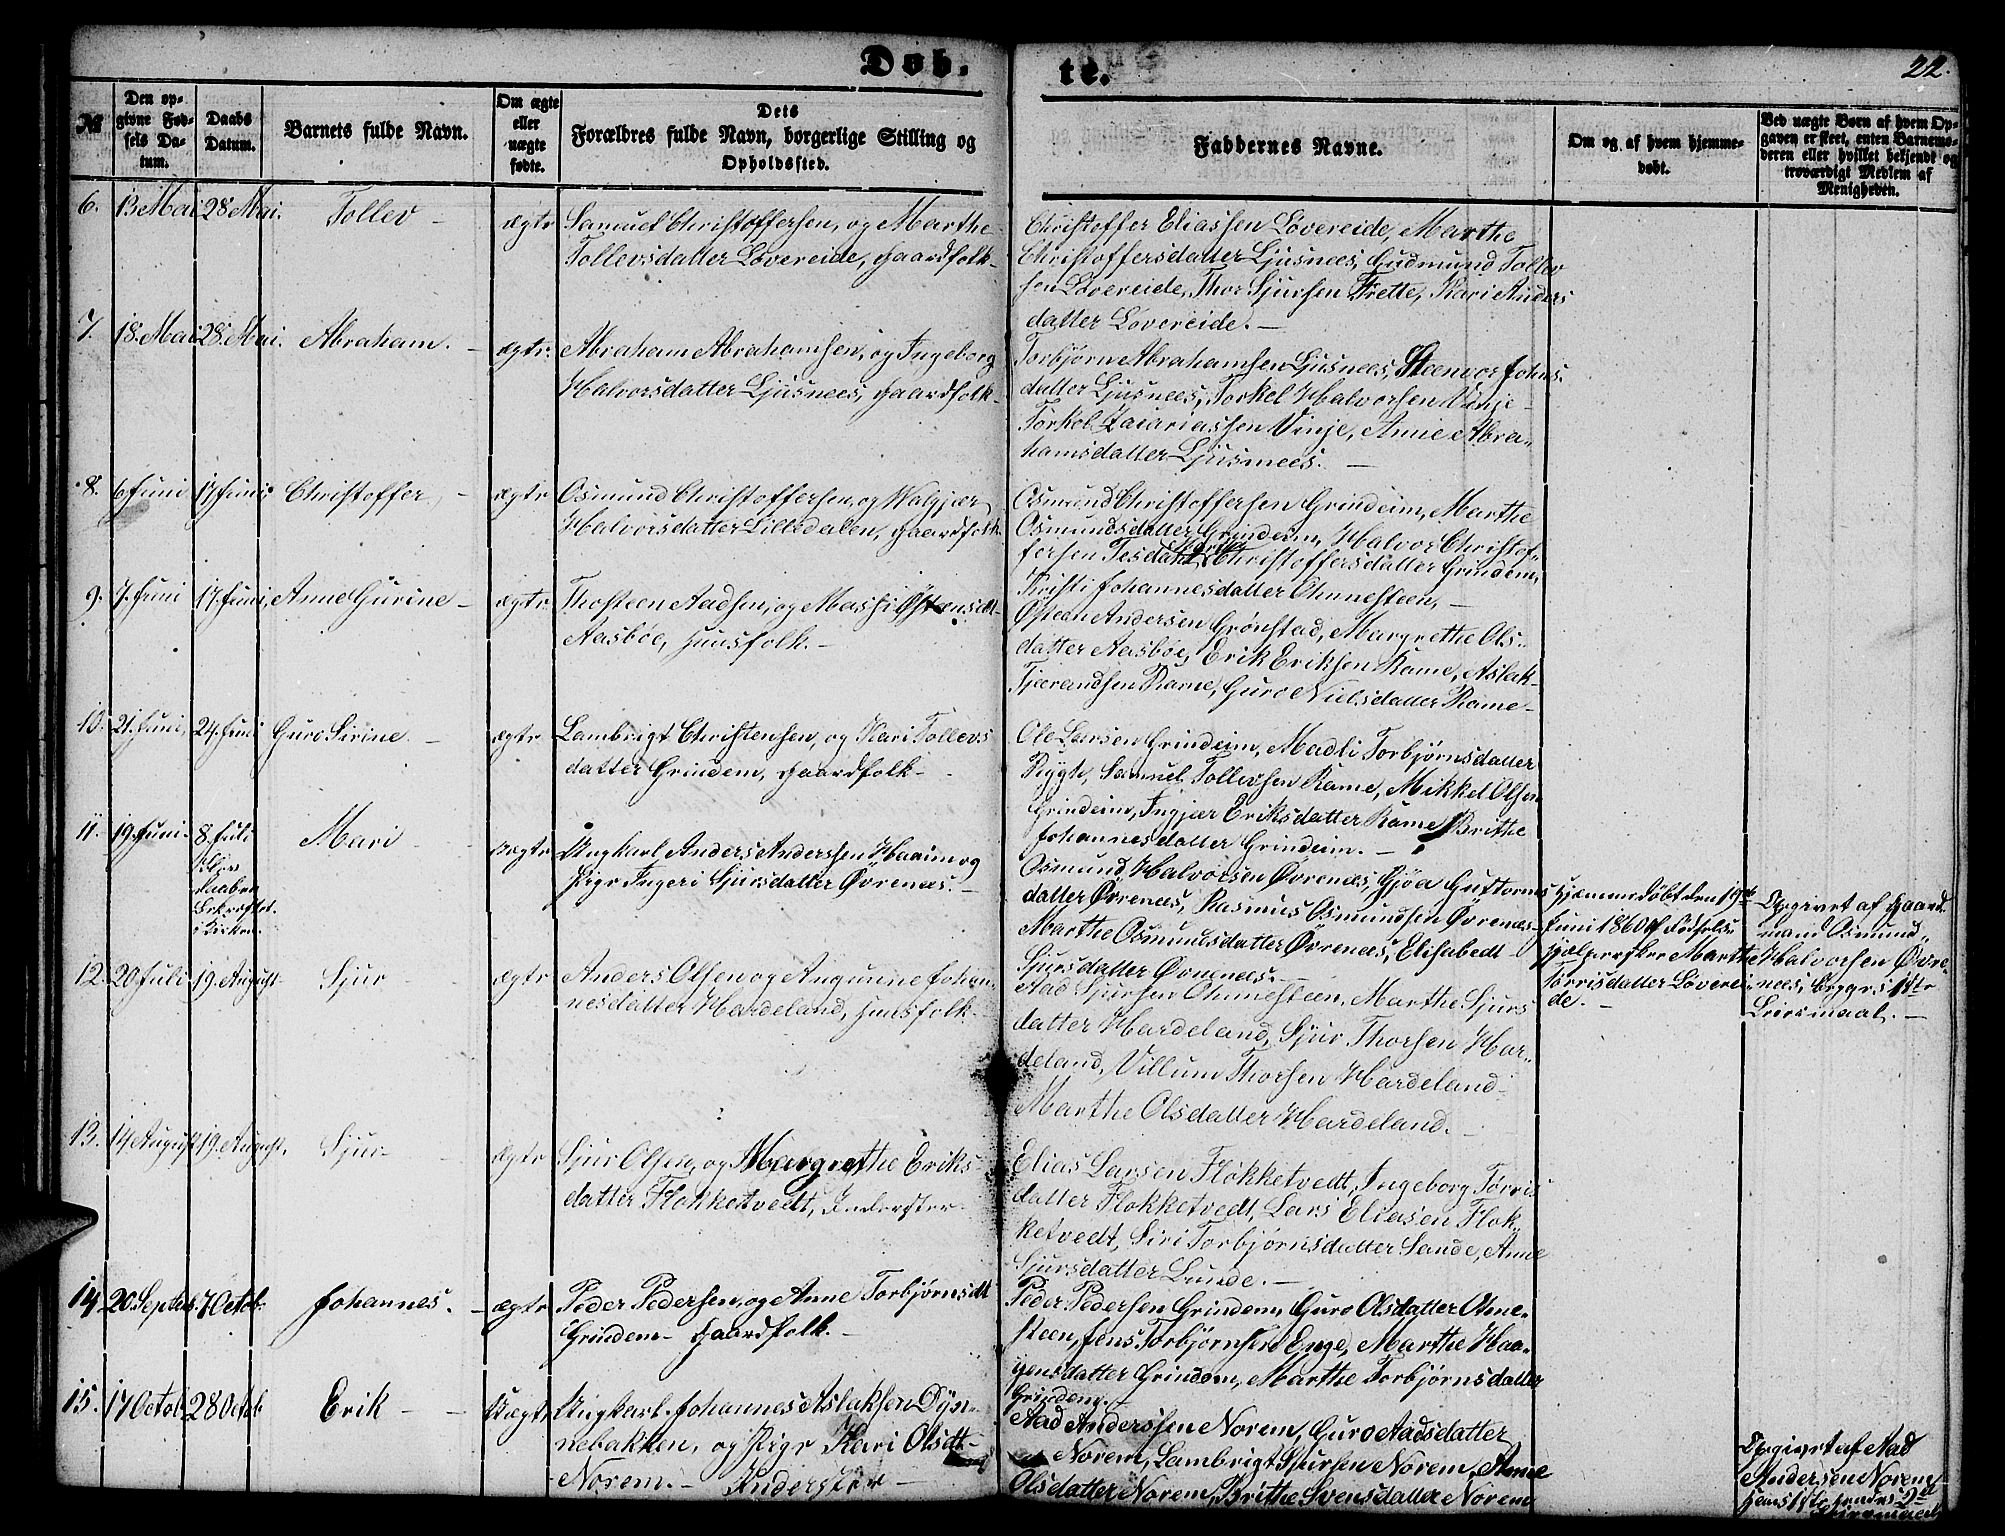 Døb-
te.
22.
№
Den op-
givne Fød-
sels Da-
tum.
Daabs
Datum.
Barnets fulde Navn.
Om ægte
eller
uægte
fødte.
Dets
Forældres fulde Navn, borgerlige Stilling og
Opholdssted.
Faddernes Navne.
Om og af hvem hjemme-
døbt.
Ved uægte Børn af hvem Op-
gaven er skeet, enten Barnemo-
deren eller hvilket bekjendt og
troværdigt Medlem af
Menigheden.
6. 13 Mai 28 Mai. Tollev - ægte
Samuel Christoffersen, og Marthe
Tollevsdatter Løvereide, Gaardfolk-
Christoffer Eliassen Løvereide, Marthe
Christoffersdatter Ljusnees, Gudmund Tollev
sen Løvereide, Thor Sjursen Frette, Kari Anders
datter Løvereide. -
7. 18. Mai 28. Mai. Abraham. - ægte:
Abraham Abrahamsen, og Ingeborg
Halvorsdatter Ljusnees, Gaardfolk-
Torbjørn Abrahamsen Ljusnees, Steenvor Johns-
datter Ljusnees, Torkel Halvorsen Vinje-
Torkel Zacariassen Vinje, Anne Abra-
hamsdatter Ljusnees. -
8. 6 Juni 17 Juni Christoffer, - ægte
Osmund Christoffersen, og Walgjær
Halvorsdatter Lillédalen, Gaardfolk.
Osmund Christoffersen Grindeim, Marthe
Osmundsdatter Grindeim, Halvor Christof-
fersen Tesdal, Marthe Christoffersdatter Grindem,
Kristi Johannesdatter Ohmesteen, -
9. 7. Juni 17. Juni, Anne Gurine - ægte
Thosteen Aadsen, og Massi Østensdt-
Aasbøe, Huusfolk. -
Østean Andersen Grønstad, Margrethe Ols-
datter Aasbøe, Erik Eriksen Rame, Aslak-
Tjærandsen Rame, Guro Nielsdatter Rame-
10. 21. Juni, 24. Juni Guro Sirine - ægte
Lambrigt Christensen, og Kari Tollevs
datter Grindem, Gaardfolk-
Ole Larsen Grindeim, Madli Torbjørnsdatter
Rygh, Samuel Tollevsen Rame, Mikkel Olsen
Grindeim, Ingjær Eriksdatter Rame, Brithe
Johannesdatter Grindeim. -
11. 19. Juni- 8. Juli
Daaben
Bekræftet
i Kirken.
Mari - uægte
Ungkarl Anders Anderssen Haaim og
Pige Ingeri Sjursdatter Øvrenæs. -
Osmund Halvorsen Øvrenæs, Gjøa Guttorms
datter Øvrenees, Rasmus Osmundsen Øvrenæs-
Marthe Osmundsdatter Øvrenæs, Elisabedt
Sjursdatter Øvrenæs. -
Hjemmedøbt den 19de
Juni 1860 af Fødsels-
hjælperske Marthe
Tørrisdatter Løverei-
de. -
Opgivet af Gaard-
mand Osmund
Halvorsen Øvre-
nees, begges 1ste
Leiersmaal. -
12. 20 Juli 19. August- Sjur - ægte
Anders Olsen og Angunne Johan-
nesdatter Hardeland, Huusfolk-
Aad Sjursen Ohmesteen, Marthe Sjurs
datter Hardeland, Sjur Thorsen Har-
deland, Villum Thorsen Hardeland-
Marthe Olsdatter Hardeland. -
13. 14 August 19. August. Sjur- ægte
Sjur Olsen, og Margrethe Eriks-
datter Flokketvedt, Inderster
Elias Larsen Flokketvedt, Ingeborg Tørris
datter Flokketvedt, Lars Eliasen Flok-
ketvedt, Siri Torbjørnsdatter Sande, Anne
Sjursdatter Lunde. -
14. 20. Septem. 7 Octob. Johannes. - ægte
Peder Pedersen, og Anne Torbjørnsdt
Grindem- Gaardfolk. -
Peder Pedersen Grindem, Guro Olsdatter Ome-
steen, Jens Torbjørnsen Enge, Marthe Haa-
gensdatter Grindem, Marthe Torbjørnsdatter
Grindem. -
15. 17 Octob. 28 Octob. Erik - - Uægte
Ungkarl. Johannes Aslaksen Dyn-
nebakken, og Pige Kari Olsdt-
Norem. - Inderster -
Aad Anderssen Norem, Guro Aadsdatter
Norem, Lambrigt Sjursen Norem, Anne
Olsdatter Norem, Brithe Svensdatter Norem
Opgivet af Aad
Andersen Norem
hans 1ste hendes 2det